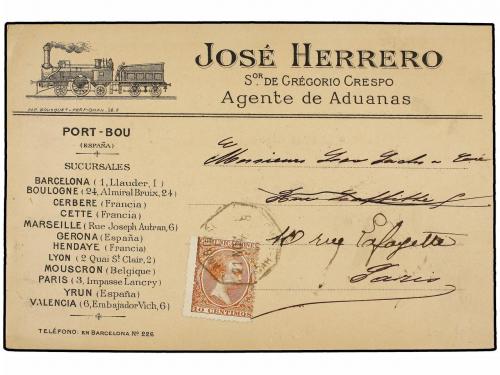 JOSÉ HERRERO
Sor DE GRÉGORIO CRESPO
Agente de Aduanas
PORT-BOU
(ESPAÑA)
SUCURSALES
BARCELONA (1, Llauder, 1)
BOULOGNE (24, Almiral Bruix, 24)
CERBERE (Francia)
CETTE (Francia)
MARSEILLE (Rue Joseph Autran, 6)
GERONA (España)
HENDAYE (Francia)
LYON (2 Quai St. Clair, 2)
MOUSCRON (Belgique)
PARIS (3, Impasse Lancry)
YRUN (España)
VALENCIA (6, Embajador Vich, 6)
TELÉFONO: EN BARCELONA No 226
Messieurs
rue Lafayette
Paris
COMUNICACIONES
10 CENTIMOS